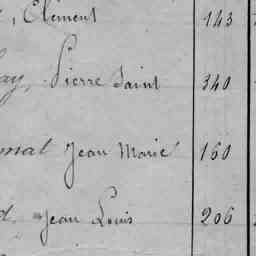 , Clément 143
ay, Pierre Saint 340
mal Jean Marie 160
d. Jean Louis 206